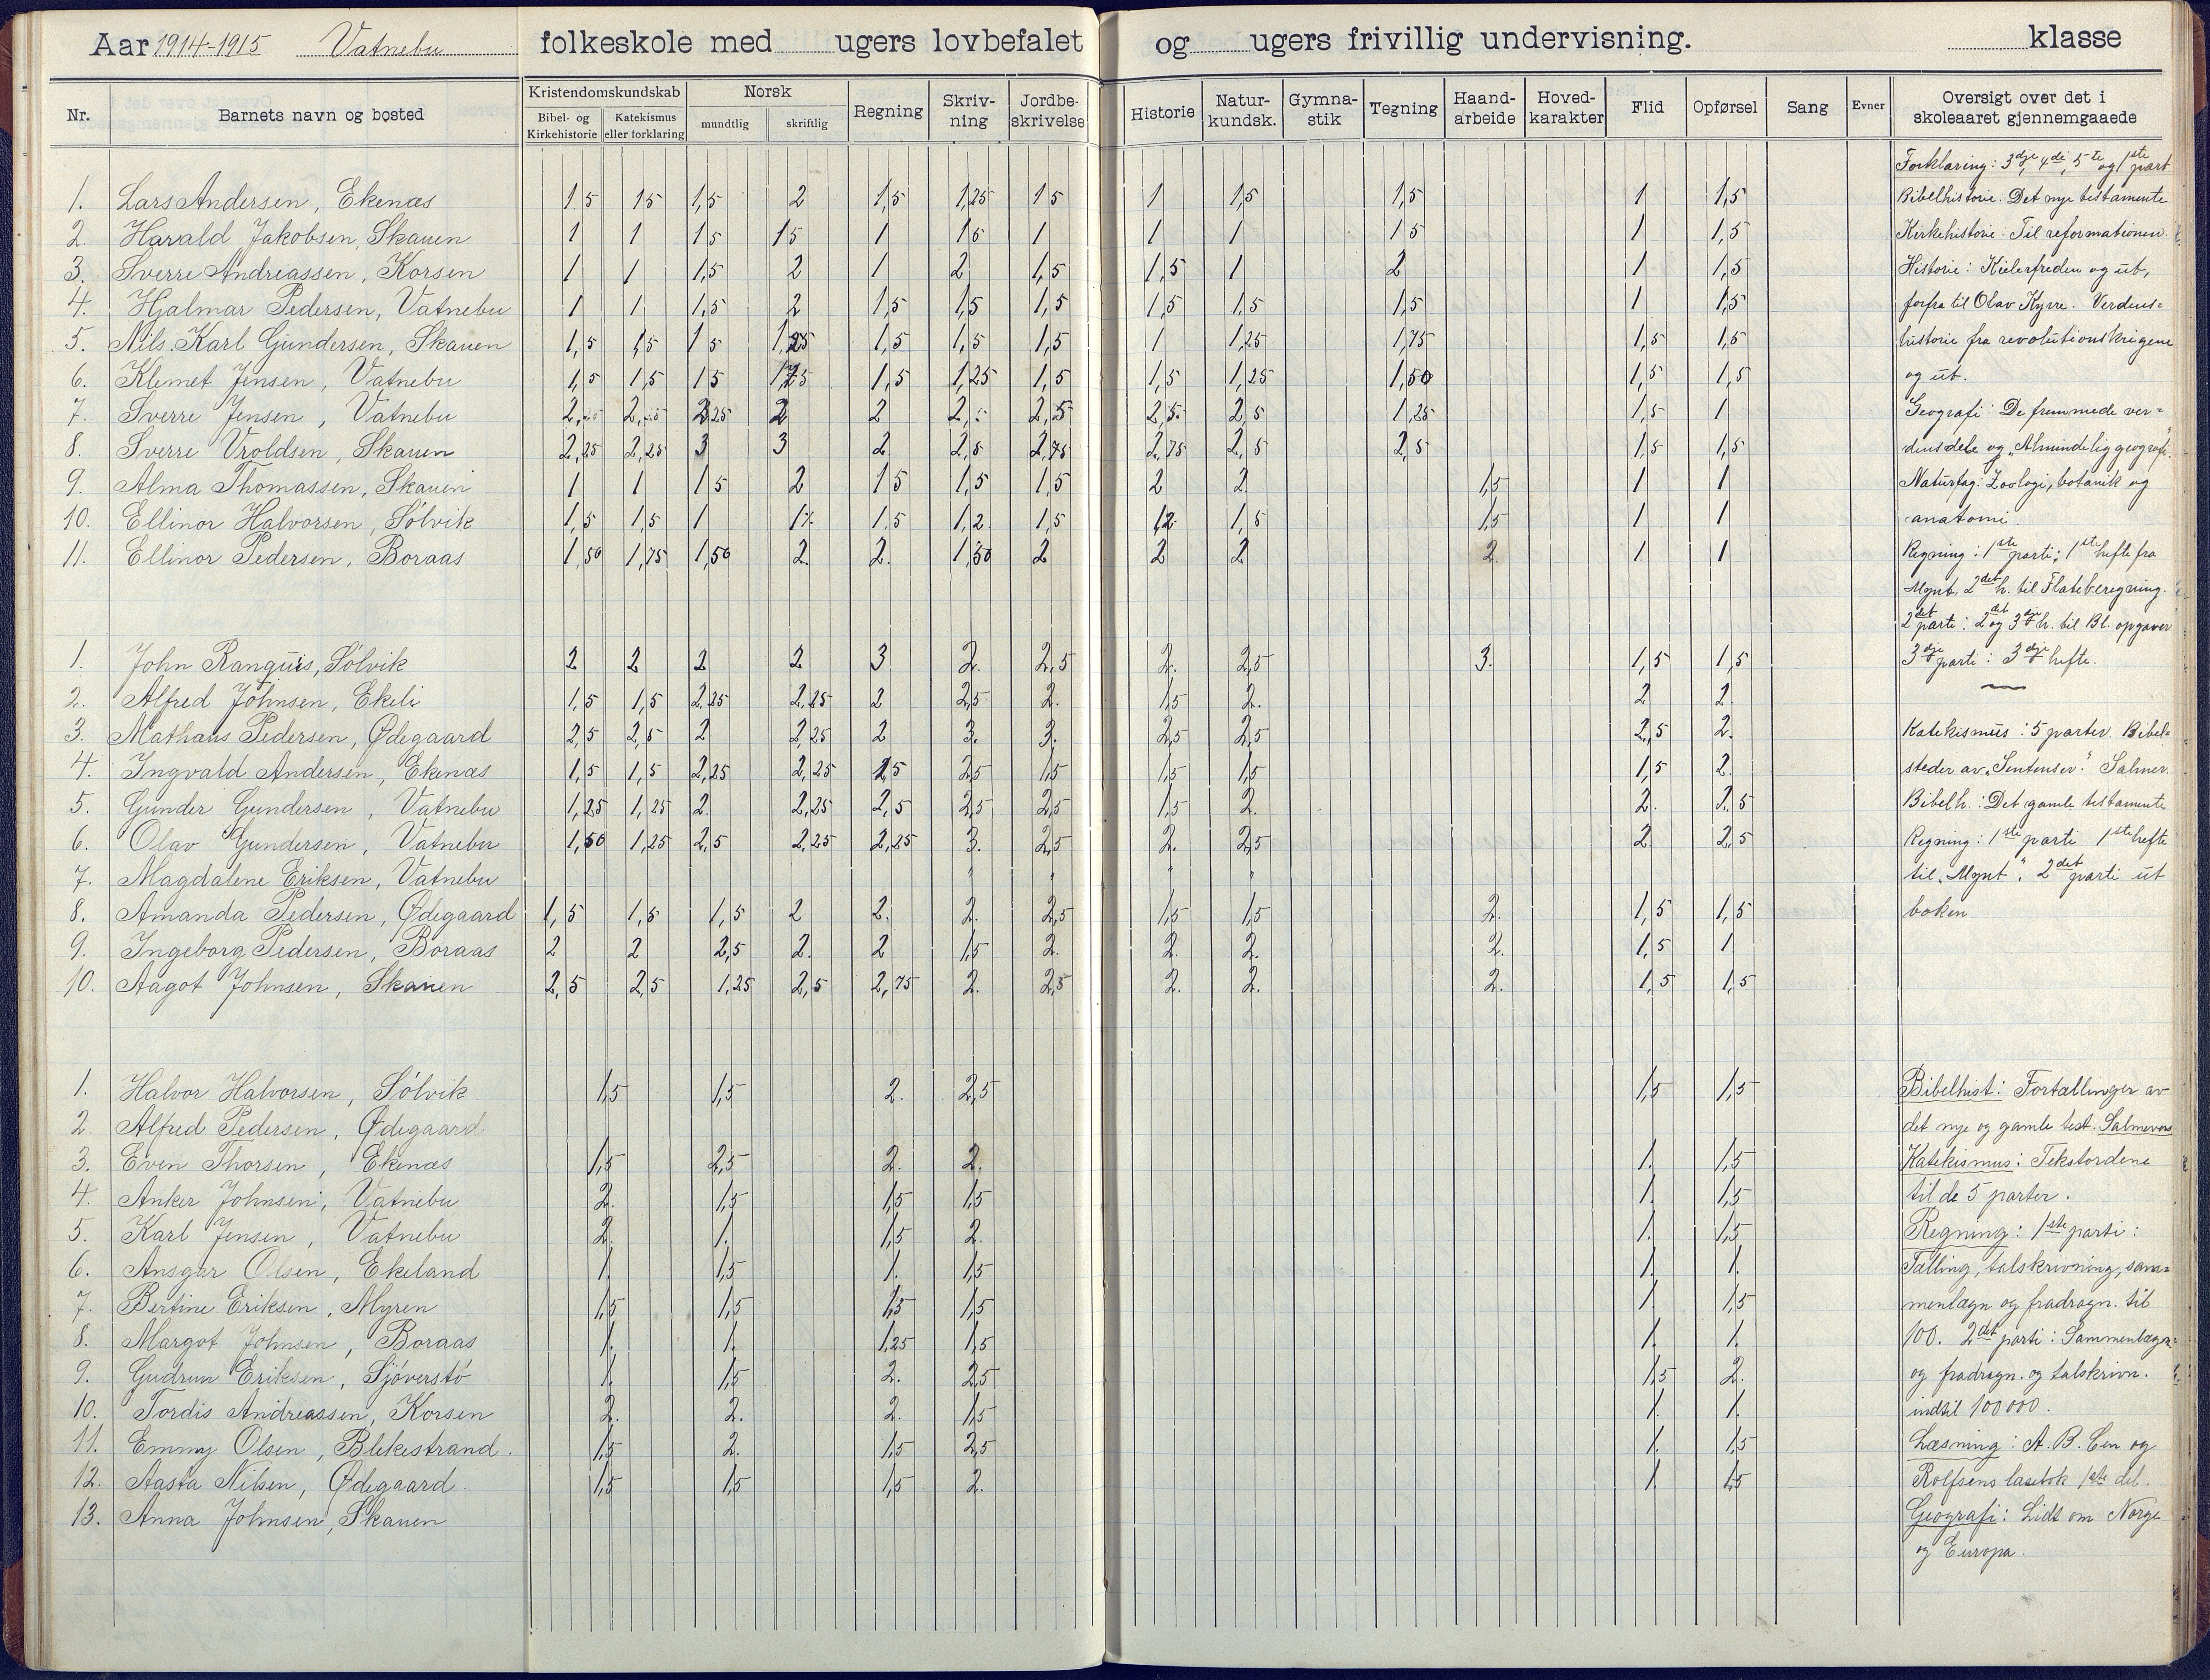 Aar 1914-1915 Vatnebu folkeskole med ugers lovbefalet og ugers frivillig undervisning. klasse
Nr. Barnets navn og bosted Kristendomskundskab Bibel- og Kirkehistorie Katekismus eller forklaring Norsk mundtlig skriftlig Regning Skriv-ning Jordbe-skrivelse Historie Natur-kundsk. Gymna-stik Tegning Haand-arbeide Hoved-karakter Flid Opførsel Sang Evner Oversigt over det i skoleaaret gjennemgaaede
Forklaring: 3dje, 4de, 5te og 1ste part
1. Lars Andersen, Ekenæs 1 5 1 5 1,5 2 1,5 1,25 1 5 1 1,5 1,5 1 1,5 Bibelhistorie. Det nye testamente
2. Harald Jakobsen, Skauen 1 1 1 5 1 5 1 1 5 1 1 1 1 5 1 1,5 Kirkehistorie: Til reformationen.
3. Sverre Andreassen, Korsen 1 1 1,5 2 1 2 1,5 1,5 1 2 1 1,5 Historie: Kielerfreden og ut,
4. Hjalmar Pedersen, Vatnebu 1 1 1,5 2 1,5 1,5 1,5 1,5 1,5 1,5 1 1,5 forfra til Olav Kyrre. Verdens=
5. Nils Karl Gundersen, Skauen 1,5 1,5 1 5 1,25 1,5 1,5 1,5 1 1,25 1,75 1,5 1,5 historie fra revolutionskrigene
6. Klemet Jensen, Vatnebu 1,5 1,5 1 5 1,5 1,25 1,5 1,5 1,25 1,50 1,5 1,5 og ut.
7. Sverre Jensen, Vatnebu 2 2,5 2,5 2,5 1,25 1,5 1 Geografi: De fremmede ver=
8. Sverre Vroldsen, Skauen 2,25 2,25 3 3 2 2,5 2,75 2,75 2,5 2,5 1,5 1,5 densdele og "Almindelig geografi"
9. Alma Thomassen, Skauen 1 1 1 5 2 1 5 1,5 1,5 2 2 1,5 1 1 Naturfag: Zoologi, botanik og
10. Ellinor Halvorsen, Sølvik 1,5 1,5 1 1,5 1,2 1,5 1,5 1,5 1 1 anatomi.
11. Ellinor Pedersen, Boraas 1,50 1,75 1,50 2. 2. 1,50 2 2 2 2. 1 1 Regning: 1ste parti: 1ste hefte fra
Mynt, 2det h. til Flateberegning.
2det parti: 2det og 3dje h. til Bl. opgaver
1. John Ranquis, Sølvik 2 2 2 2 3 2. 2,5 2. 2,5 3. 1,5 1,5 3dje parti: 3dje hefte.
2. Alfred Johnsen, Ekeli 1,5 1,5 2,25 2,25 2 2,5 2. 1,5 2. 2 2
3. Mathæus Pedersen, Ødegaard 2,5 2,5 2 2,25 2 3. 3. 2,5 2,5 2,5 2. Katekismus: 5 parter. Bibel=
4. Ingvald Andersen, Ekenæs 1,5 1,5 2,25 2,25 2,5 1,5 1,5 1,5 1,5 2. steder av "Sentenser." Salmer.
5. Gunder Gundersen, Vatnebu 1,25 1,25 2. 2,25 2,5 2,5 2,5 1,5 2. 2. 2,5 Bibelh.: Det gamle testamente
6. Olav Gundersen, Vatnebu 1,50 1,25 2,5 2,25 2,25 3. 2,5 2. 2,5 2 2,5 Regning: 1ste parti 1ste hefte
7. Magdalene Eriksen, Vatnebu til "Mynt". 2det parti ut
8. Amanda Pedersen, Ødegaard 1,5 1,5 1,5 2 2. 2. 2,5 1,5 1,5 2. 1,5 1,5 boken
9. Ingeborg Pedersen, Boraas 2 2 2,5 2. 2 1,5 2. 2. 2. 2. 1,5 1
10. Aagot Johnsen, Skauen 2,5 2,5 1,25 2,5 2,75 2. 2,5 2. 2. 2. 1,5 1,5
1. Halvor Halvorsen, Sølvik 1,5 1,5 2. 2,5 1,5 1,5 Bibelhist: Fortællinger av
2. Alfred Pedersen, Ødegaard det nye og gamle test. Salmevers
3. Even Thorsen, Ekenæs 1,5 2,5 2. 2. 1. 1,5 Katekismus: Tekstordene
4. Anker Johnsen, Vatnebu 2. 1,5 1,5 1,5 1. 1,5 til de 5 parter.
5. Karl Jensen, Vatnebu 2. 1. 1,5 2. 1. 1,5 Regning: 1ste parti:
6. Ansgar Olsen, Ekeland 1. 1,5 1. 1,5 1. 1. Tælling, talskrivning, sam=
7. Bertine Eriksen, Myren 1,5 1,5 1,5 1,5 1. 1,5 menlægn og fradragn. til
8. Margot Johnsen, Boraas 1. 1. 1,25 1,5 1. 1. 100. 2det parti: Sammenlægn=
9. Gudrun Eriksen, Sjøverstø 1. 1,5 2. 2,5 1,5 2. og fradragn. og talskrivn.
10. Tordis Andreassen, Korsen 2. 2. 2. 1,5 1. 1. indtil 100000.
11. Emmy Olsen, Blekestrand. 1,5 2. 1,5 2,5 1. 1,5 Læsning: A.B.Cen og
12. Aasta Nilsen, Ødegaard. 1,5 1,5 1,5 2. 1. 1,5 Rolfsens læsebok 1ste del.
13. Anna Johnsen, Skauen Geografi: Lidt om Norge
og Europa.